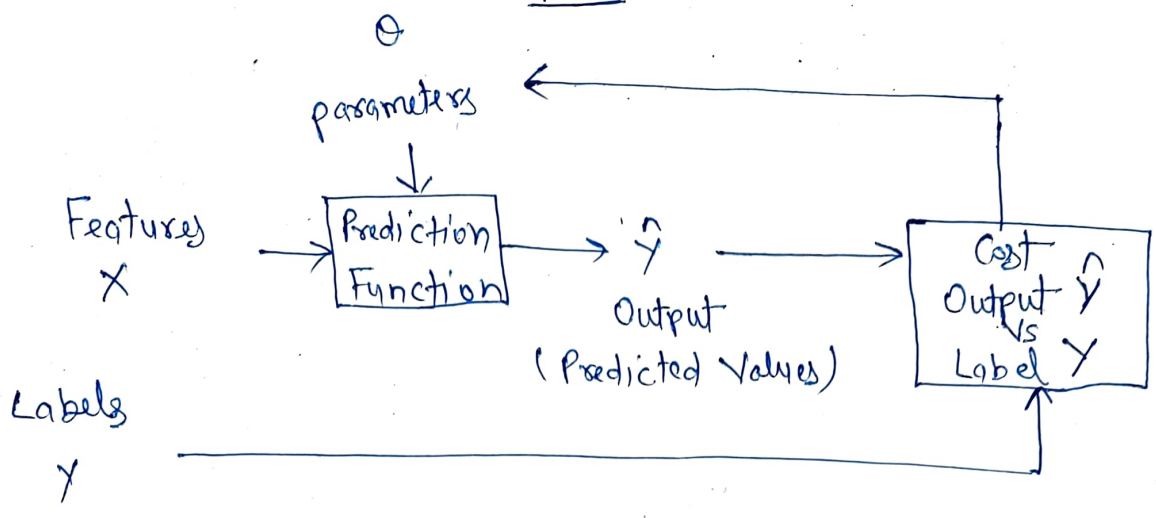 θ
parameters
Features
X
Prediction
Function
Ŷ
Output
(Predicted Values)
Cost
Output Ŷ
vs
Label Y
Labels
Y